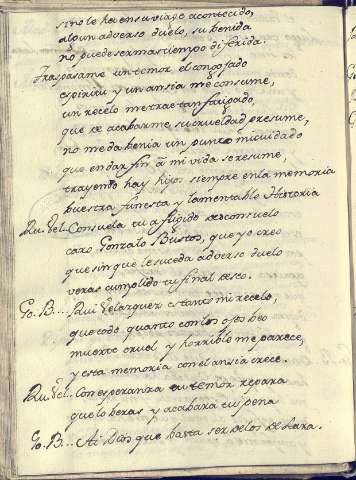 sino le ha en su viage acontecido,
algun adverso duelo, su benida
no puede ser mas tiempo diferida.
Traspasame un temor el congojado
espiritu y un ansia me consume,
un recelo me trae tan fatigado,
que de acabarme su crueldad presume,
no me da benia un punto mi cuidado
que en dar fin a mi vida se resume,
trayendo hay hijos siempre en la memoria
buestra funesta y lamentable Historia
Ru. Vel. Consuela tu afligido desconsuelo
caro Gonzalo Bustos, que yo creo
que sin que le suceda adverso duelo
veras cumplido tu final deseo.
Go. B... Rui Velazquez es tanto mi recelo,
que todo quanto con los ojos beo
muerte cruel y horrible me parece,
y esta memoria con el ansia crece.
Ru. Vel. Con esperanza tu temor repara
que lo beras y acabara tu pena
Go. B... Ai Dios que basta ser de los de Lara.